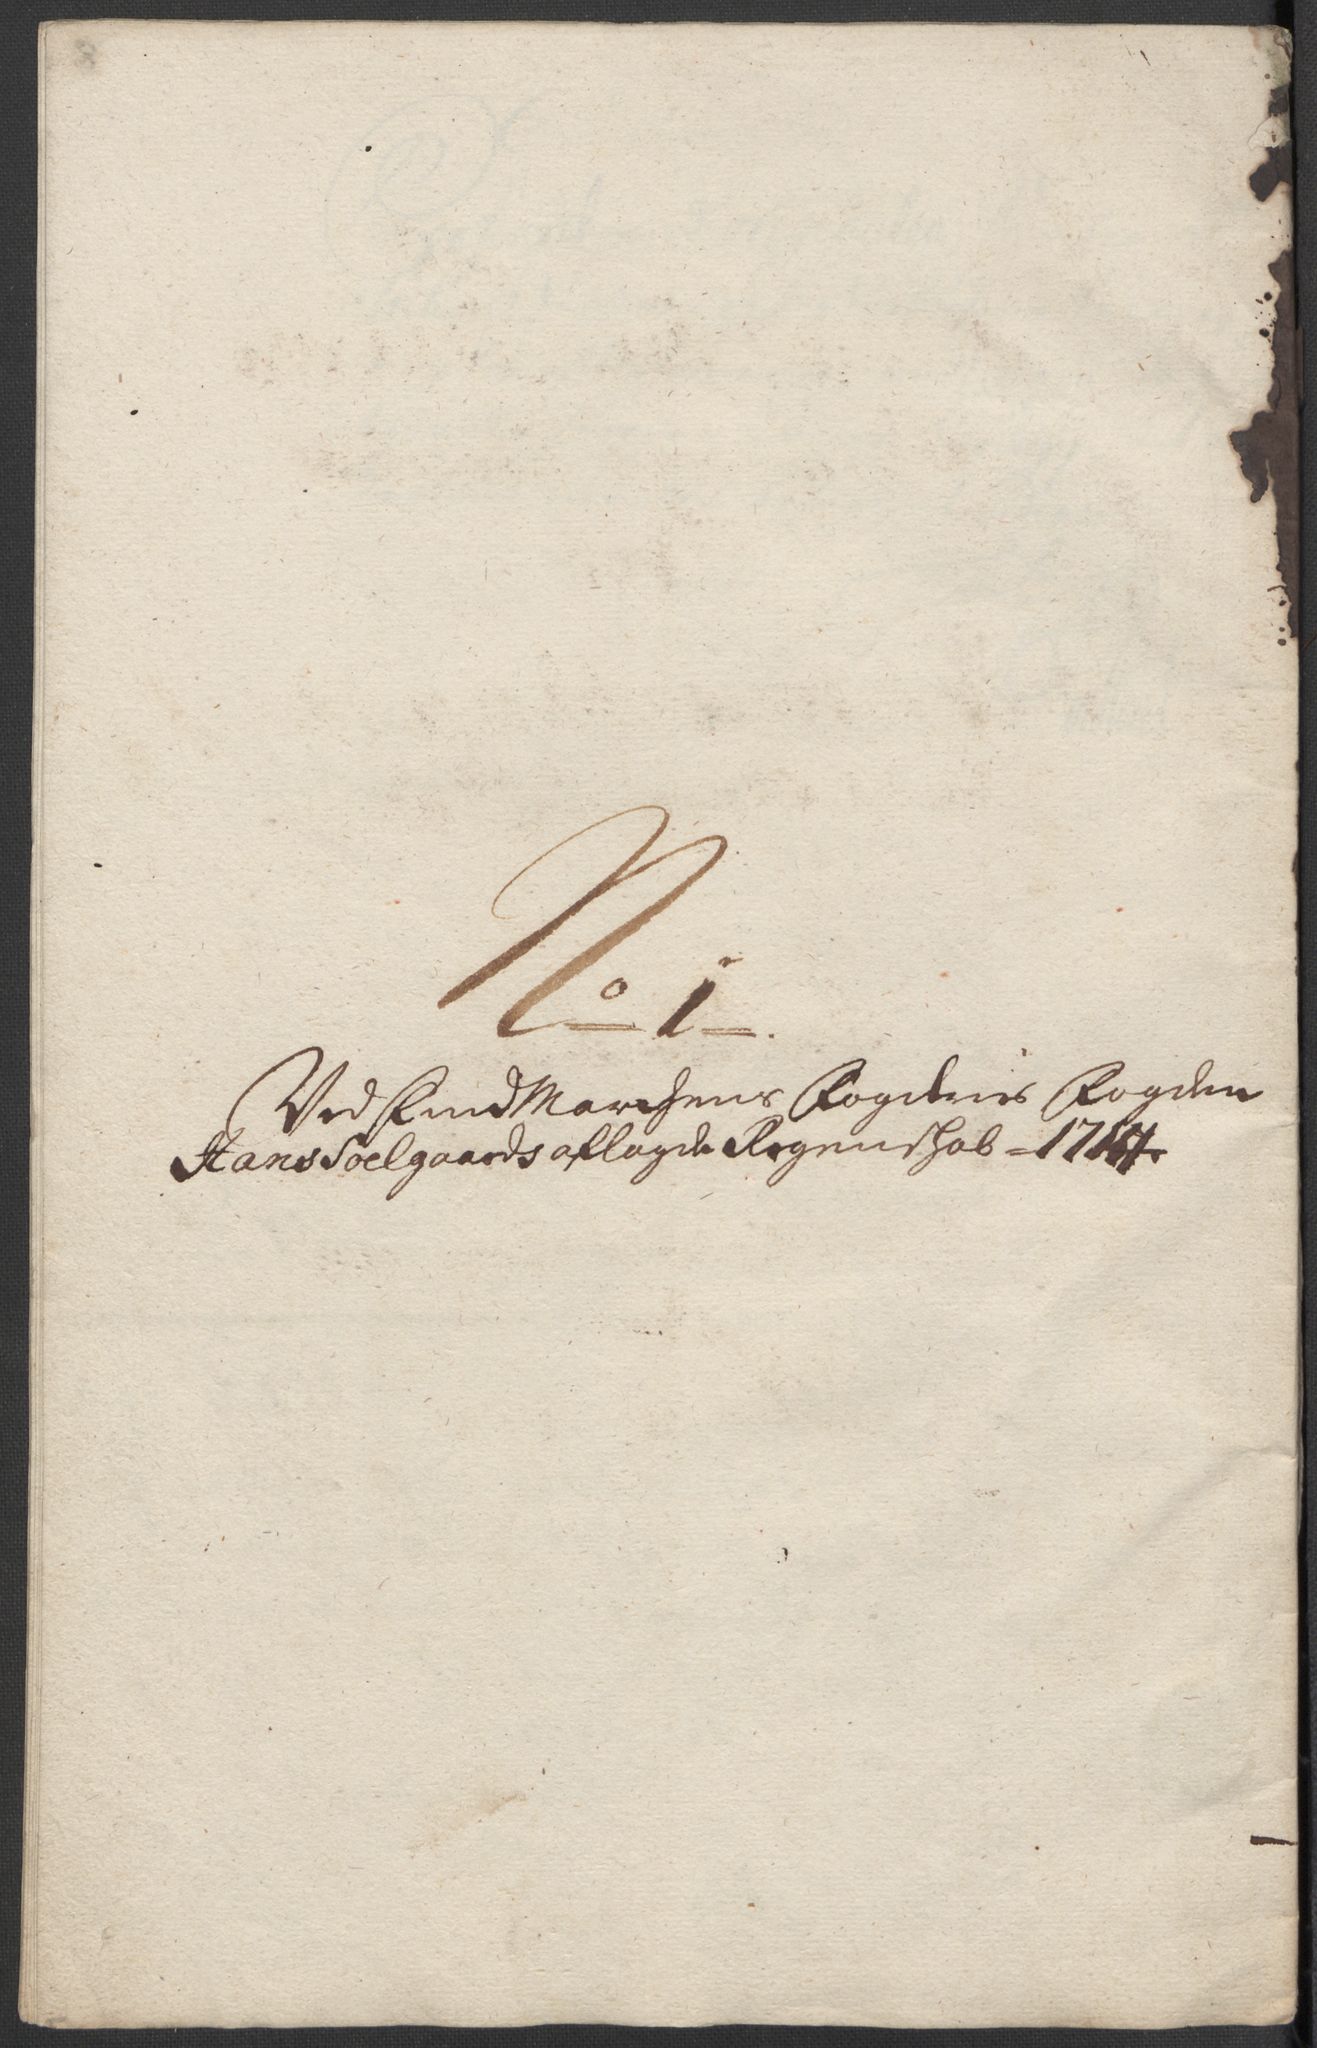 No 1.
Ved FindMarchens Fogderies Fogden
Hans Soelgaards aflagde Regenschab = 1714